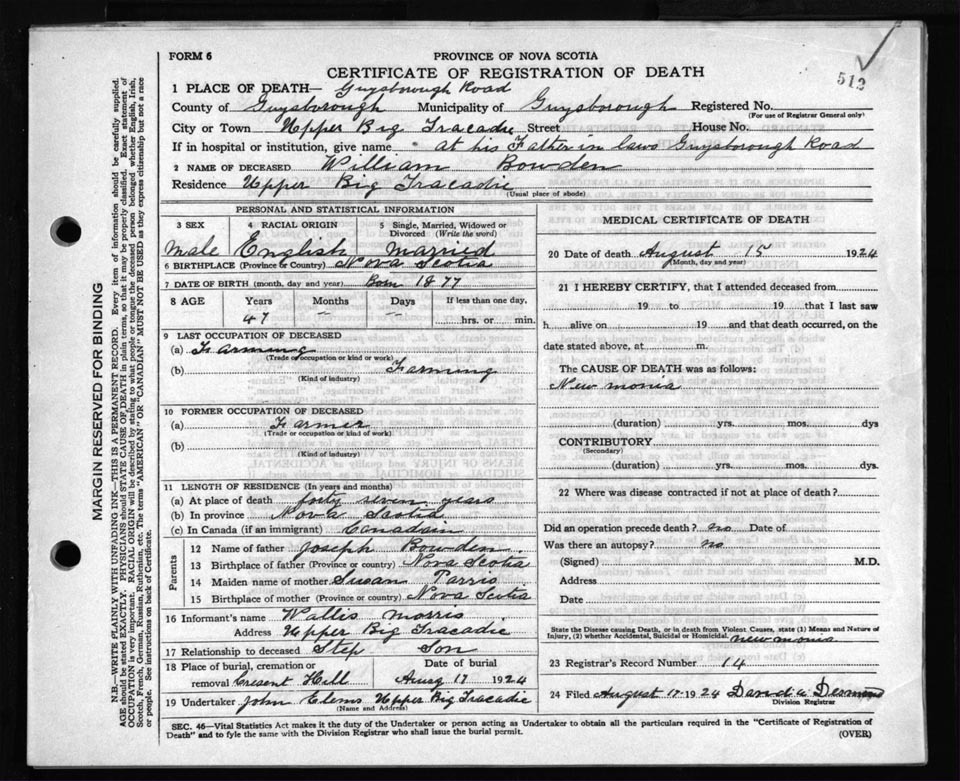 512
FORM 6
PROVINCE OF NOVA SCOTIA
CERTIFICATE OF REGISTRATION OF DEATH
1 PLACE OF DEATH— Guysborough Road
County of Guysborough Municipality of Guysborough Registered No.
(For use of Registrar General only)
City or Town Upper Big Tracadie Street House No.
If in hospital or institution, give name at his Father in laws Guysborough Road
2 NAME OF DECEASED William Bowden
Residence Upper Big Tracadie
(Usual place of abode)
PERSONAL AND STATISTICAL INFORMATION
3 SEX 4 RACIAL ORIGIN 5 Single, Married, Widowed or Divorced (Write the word)
male English married
6 BIRTHPLACE (Province or Country) Nova Scotia
7 DATE OF BIRTH (month, day and year) Born 1877
8 AGE Years Months Days If less than one day,
47 — — hrs. or min.
9 LAST OCCUPATION OF DECEASED
(a) Farming
(Trade or occupation or kind or work)
(b) Farming
(Kind of industry)
10 FORMER OCCUPATION OF DECEASED
(a) Farmer
(Trade or occupation or kind of work)
(b)
(Kind of industry)
11 LENGTH OF RESIDENCE (In years and months)
(a) At place of death forty seven years
(b) In province Nova Scotia
(c) In Canada (if an immigrant) Canadain
Parents
12 Name of father Joseph Bowden
13 Birthplace of father (Province or Country) Nova Scotia
14 Maiden name of mother Susan Parris
15 Birthplace of mother (Province or country) Nova Scotia
16 Informant's name Wallis Morris
Address Upper Big Tracadie
17 Relationship to deceased Step Son
18 Place of burial, cremation or removal Cresent Hill
Date of burial Aug 17 1924
19 Undertaker John Elems Upper Big Tracadie
(Name and Address)
MEDICAL CERTIFICATE OF DEATH
20 Date of death August 15 1924
(Month, day and year)
21 I HEREBY CERTIFY, that I attended deceased from
19 to 19 that I last saw
h alive on 19 and that death occurred, on the
date stated above, at m.
The CAUSE OF DEATH was as follows:
New monia
(duration) yrs. mos. dys
CONTRIBUTORY
(Secondary)
(duration) yrs. mos. dys.
22 Where was disease contracted if not at place of death?
Did an operation precede death? no Date of
Was there an autopsy? no
(Signed) M.D.
Address
Date
State the Disease causing Death, or in death from Violent Causes, state (1) Means and Nature of
Injury, (2) whether Accidental, Suicidal or Homicidal. New monia
23 Registrar's Record Number 14
24 Filed August 17 1924 David A Desmond
Division Registrar
SEC. 46—Vital Statistics Act makes it the duty of the Undertaker or person acting as Undertaker to obtain all the particulars required in the "Certificate of Registration of
Death" and to fyle the same with the Division Registrar who shall issue the burial permit.
(OVER)
MARGIN RESERVED FOR BINDING
N.B.—WRITE PLAINLY WITH UNFADING INK—THIS IS A PERMANENT RECORD. Every item of information should be carefully supplied.
AGE should be stated EXACTLY. PHYSICIANS should STATE CAUSE OF DEATH in plain terms, so that it may be properly classified. Exact statement of
OCCUPATION is very important. RACIAL ORIGIN will be described by stating to what people or tongue the deceased person belonged whether English, Irish,
Scotch, French, German, Russian, Ruthenian, etc. The terms "AMERICAN" OR "CANADIAN" MUST NOT BE USED as they express citizenship but not a race
or people. See instructions on back of Certificate.